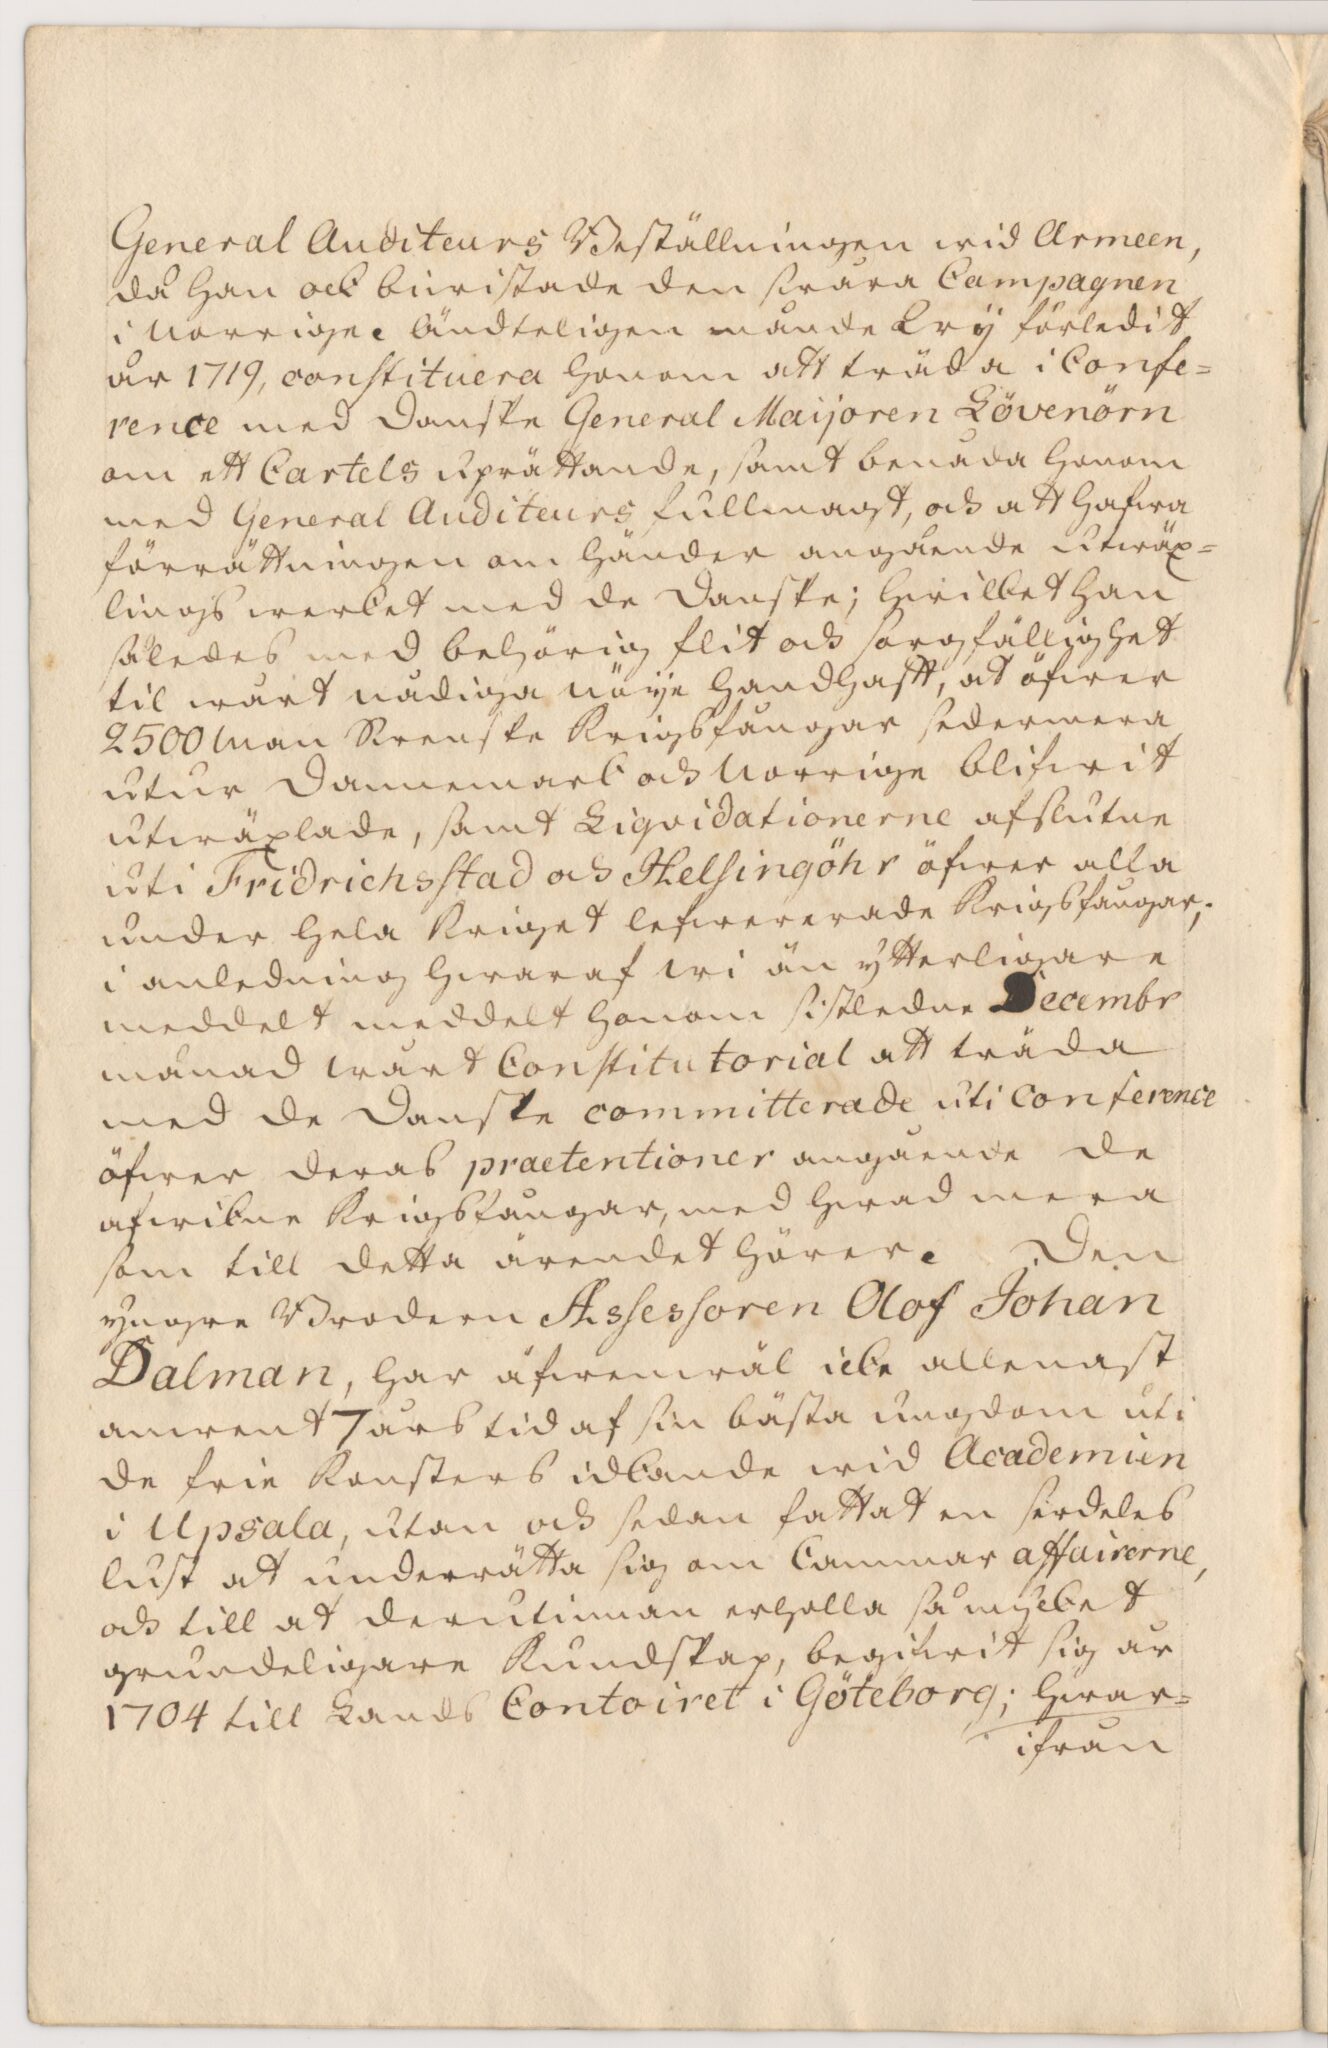 General Auditeurs Beställningen wid Armeen,
då han ock biwistade den swåra Campagnen
i Norrige. Ändteligen månde Wij förledit
år 1719, constituera honom att träda i Confe=
rence med Danske General Maijoren Lövenörn
om ett Cartels uprättande, samt benåda honom
med General Auditeurs fullmagt, och att hafwa
förrättningen om händer angående utwäx=
lings werket med de Danske; hwilket han
således med behörig flit och sorgfällighet
til wårt nådiga nöije handhaft, at öfwer
2500 Man Swenske Krigsfångar sedermera
utur Dannemark och Norrige blifwit
utwäxlade, samt Liqvidationerne afslutne
uti Fridrichsstad och Helsingöhr öfwer alla
under hela Kriget lefwererade Krigsfångar;
i anledning hwaraf wi än ytterligare
meddelt meddelt honom sistledne Decembr
månad wårt Constitutorial att träda
med de Danske committerade uti Conference
öfwer deras praetentioner angående de
afwikne Krigsfångar, med hwad mera
som till detta ärendet hörer. Den
yngre Brodern Assessoren Olof Johan
Dalman, har äfwenwäl icke allenast
anwent 7 års tid af sin bästa ungdom uti
de frie Konsters idkande wid Academien
i Upsala, utan och sedan fattat en serdeles
lust at underrätta sig om Cammar affairerne,
och till at derutinnan erhålla så mycket
grundeligare Kundskap, begifwit sig år
1704 till Lands Contoiret i Göteborg; hwar=
ifrån